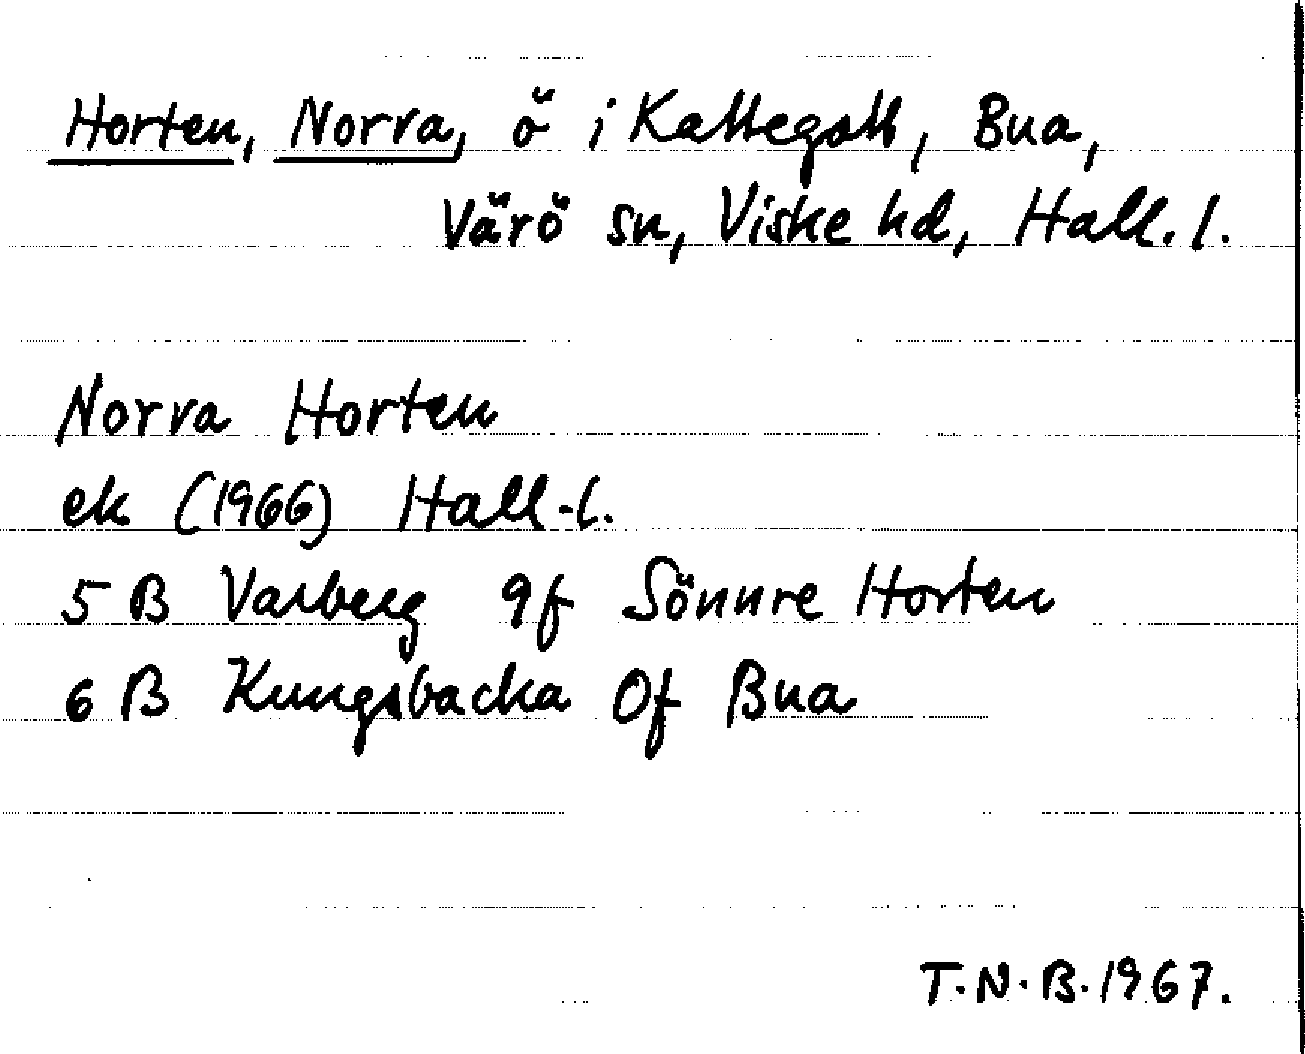 Horten, Norra, ö i Kattegatt, Bua,
Värö sn, Viske hd, Hall. l.
Norra Horten
ek (1966) Hall. l.
5 B Varberg 9f Sönnre Horten
6 B Kungsbacka 0f Bua
T.N.B. 1967.